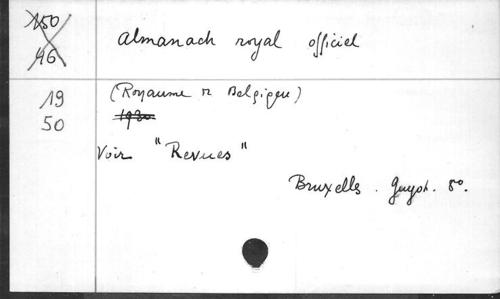 150
46
Almanach royal officiel
19
50
(Royaume de Belgique)
1930
Voir "Revues"
Bruxelles. Guyot. 8°.